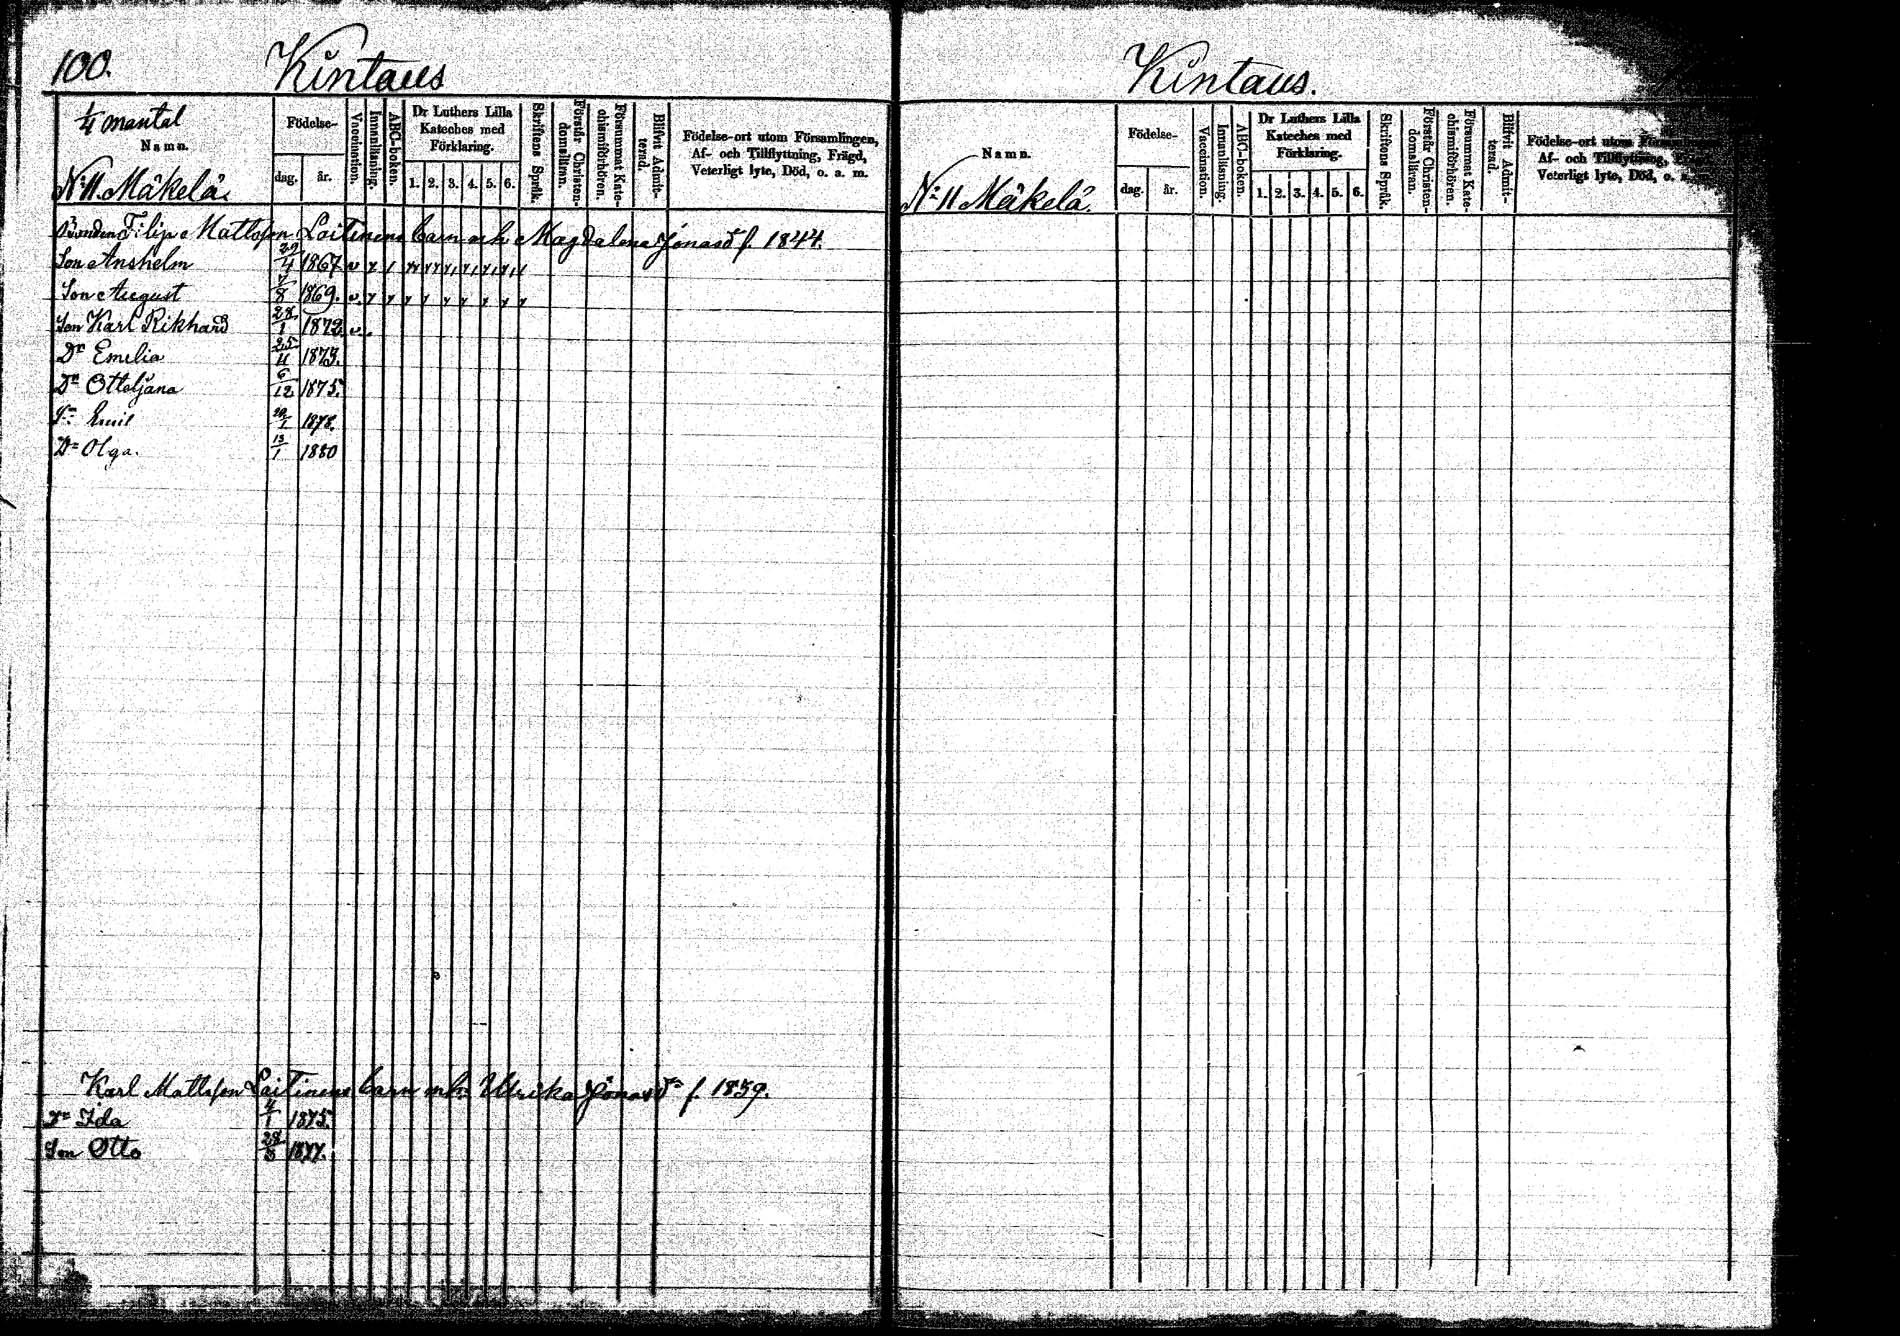 100.
Kintaus
1/4 mantal
Namn.
Födelse-
dag.
år.
Vaccination.
Innanläsning.
ABC-boken.
Dr Luthers Lilla
Kateches med
Förklaring.
1. 2. 3. 4. 5. 6.
Skriftens Språk.
Förstår Christen-
domsläran.
Försummat Kate-
chismiförhören.
Blifvit Admit-
terad.
Födelse-ort utom Församlingen,
Af- och Tillflyttning, Frägd,
Veterligt lyte, Död, o. a. m.
N:o 11 Mäkelä.
Bonden Filip Mattsson Laitinens barn och Magdalena Jonasd f. 1844.
Son Anshelm 29/4 1867 v
Son August 7/8 1869. v.
Son Karl Rikhard 28/1 1872 v.
Dr Emelia 25/11 1873.
Dr Otteljana 6/12 1875.
Sn Emil 1878.
Dr Olga. 13/1 1880
Karl Mattsson Laitinens barn och Ulrika Jonasd f. 1859.
Dr Ida 4/1 1875.
Son Otto 28/3 1877.
Kintaus.
Namn.
Födelse-
dag.
år.
Vaccination.
Innanläsning.
ABC-boken.
Dr Luthers Lilla
Kateches med
Förklaring.
1. 2. 3. 4. 5. 6.
Skriftens Språk.
Förstår Christen-
domsläran.
Försummat Kate-
chismiförhören.
Blifvit Admit-
terad.
Födelse-ort utom Församlingen,
Af- och Tillflyttning, Frägd,
Veterligt lyte, Död, o. a. m.
N:o 11 Mäkelä.